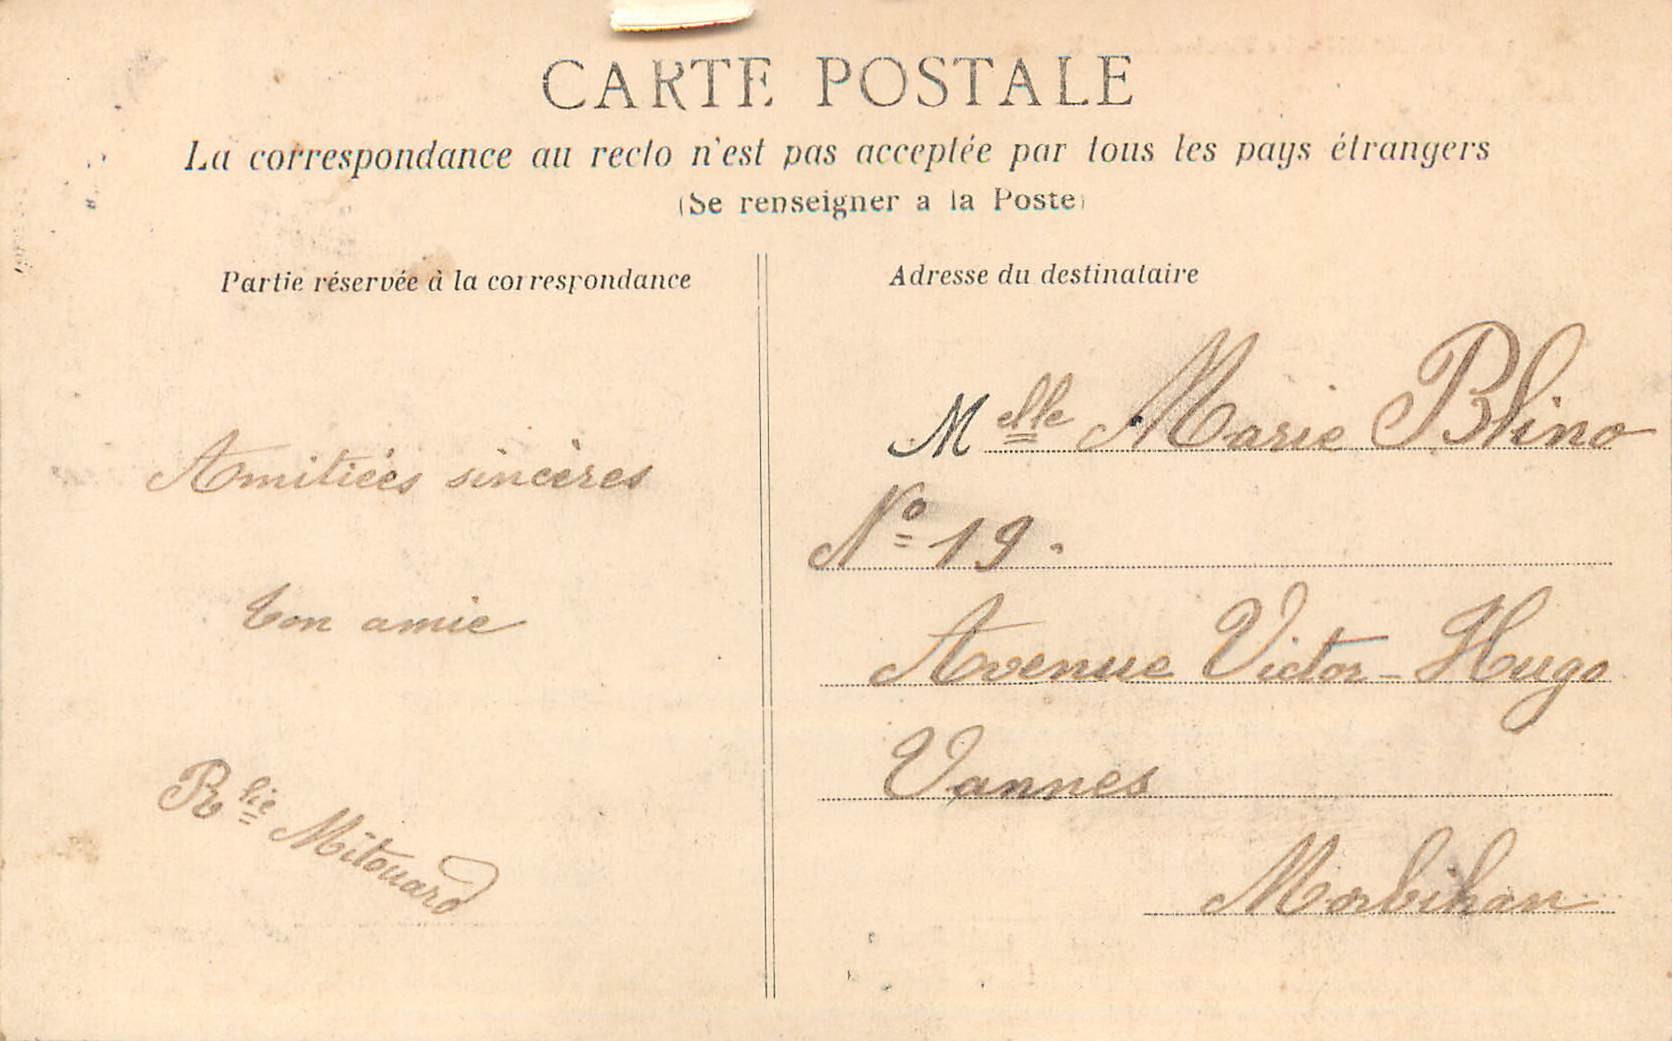 CARTE POSTALE
La correspondance au recto n'est pas acceptée par tous les pays étrangers
(Se renseigner a la Poste)
Partie réservée à la correspondance
Adresse du destinataire
Amitiées sincères
Ton amie
Rlie Mitouard
Melle Marie Blino
No 19.
Avenue Victor-Hugo
Vannes
Morbihan